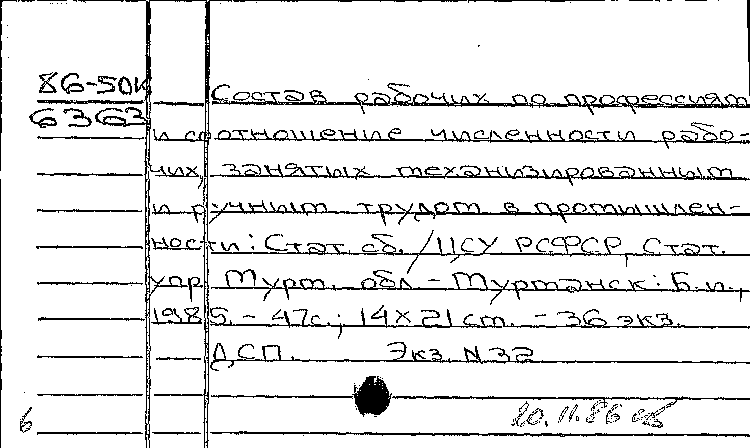 86-50К
6363
Состав рабочих по профессиям
и соотношение численности рабо-
чих, занятых механизированным
и ручным трудом в промышлен-
ности: Стат. сб. / ЦСУ РСФСР, Стат.
упр. Мурм. обл. - Мурманск: Б.и.,
1985. - 47с.; 14х21 см. - 36 экз.
ДСП. Экз. N 32
20.11.86
6